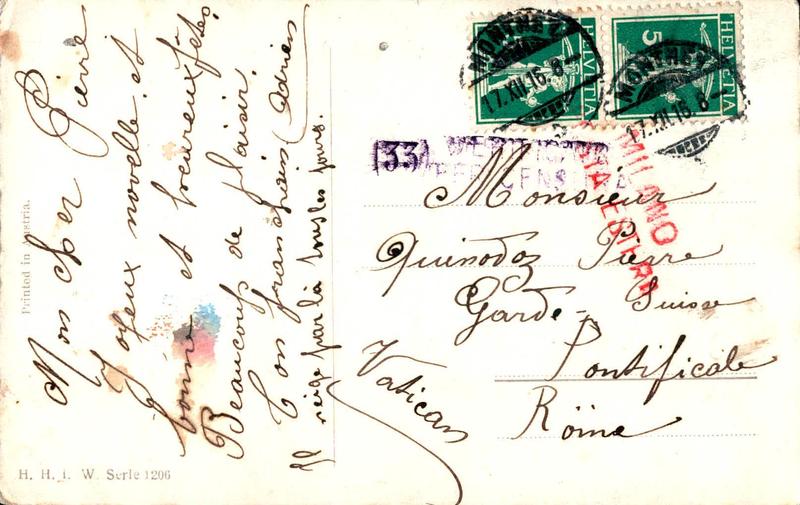 Mon cher Pierre
Joyeux novelle et
bonne et heureux fête
Beaucoup de plaisir.
Ton français Adrien
Il neige par là tous les jours.
Printed in Austria.
H. H. i. W. Serie 1206
HELVETIA
5
HELVETIA
MONTHEY
17.XII.16.8
MONTHEY
17.XII.16.8
(33) VERIFICATO
PER CENSURA
MILANO
ESTERA
Monsieur
Quinodoz Pierre
Garde-Suisse
Pontificale
Röme
Vatican